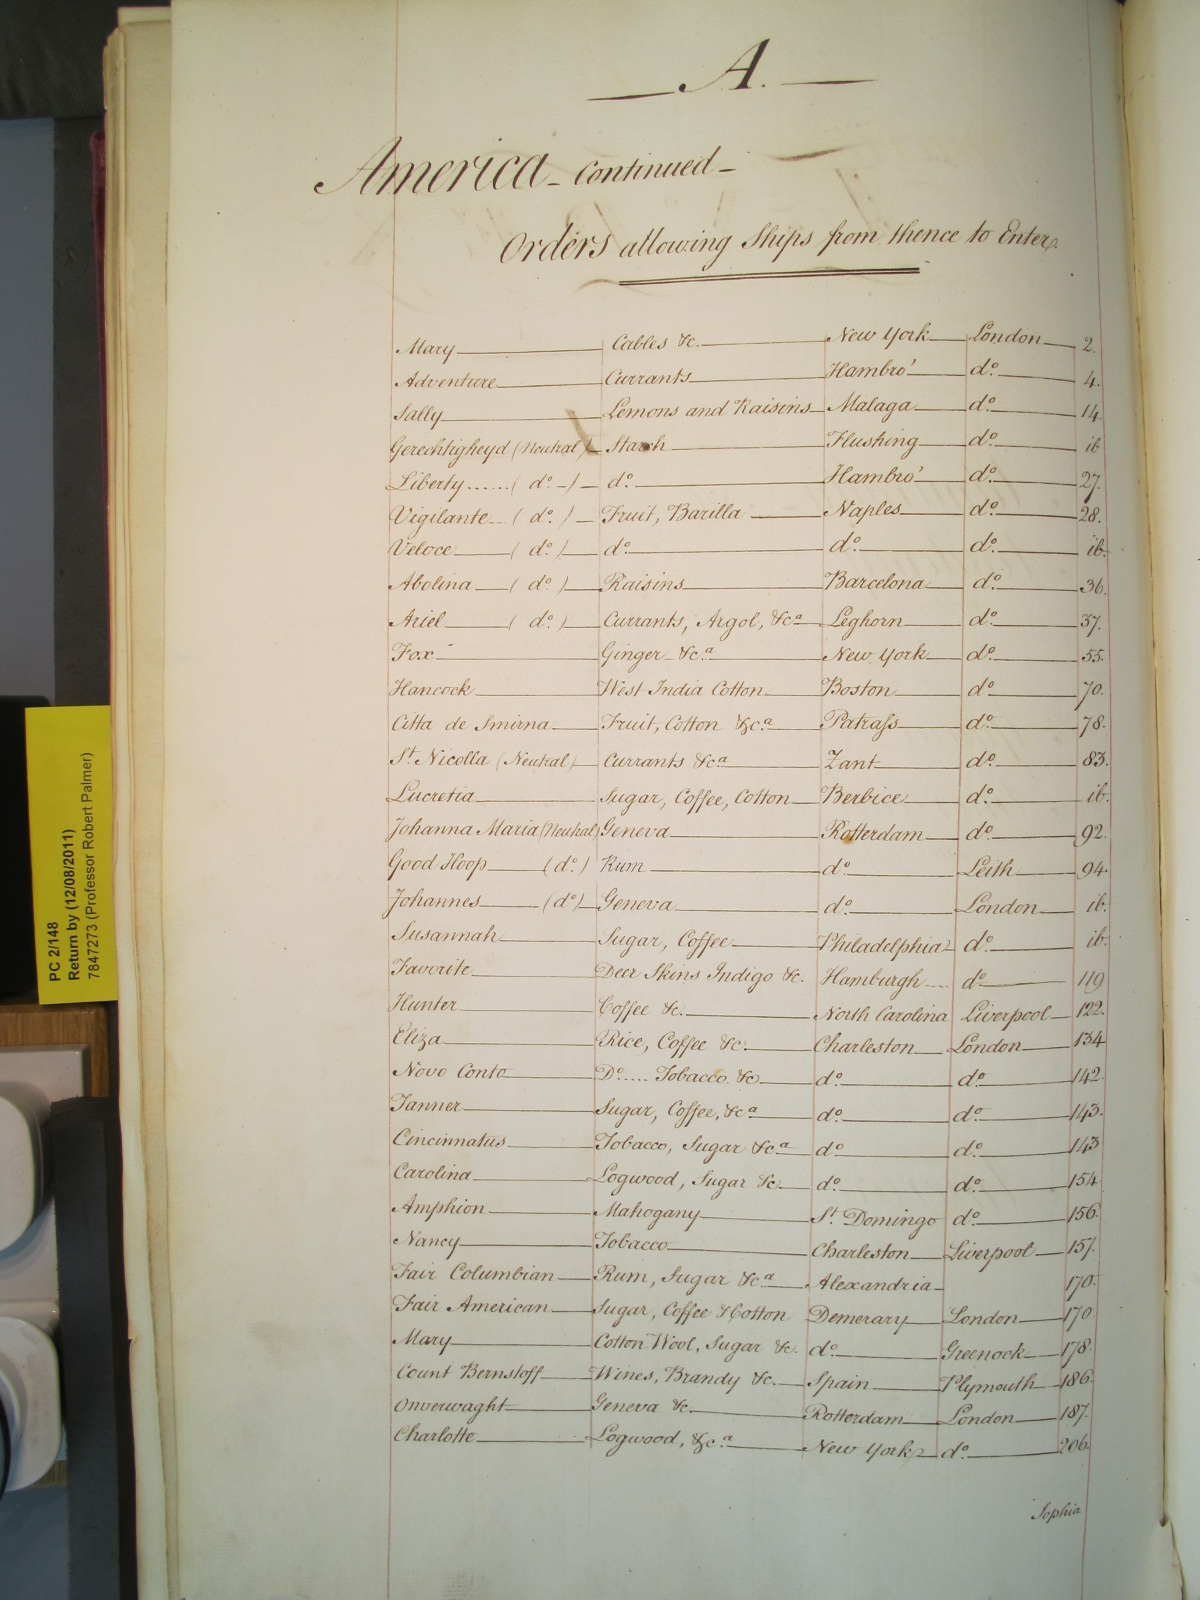 A.
America - continued -
Orders allowing Ships from thence to Enter
Mary Cables &c. New York London 2.
Adventure Currants Hambro' do. 4.
Sally Lemons and Raisins Malaga do. 14
Gerechtigheyd (Neutral) Starch Flushing do. ib
Liberty ...... (do. -) do. Hambro' do. 27.
Vigilante .. (do.) Fruit, Barilla Naples do. 28.
Veloce (do.) do. do. do. ib.
Abolina (do.) Raisins Barcelona do. 36.
Ariel (do.) Currants, Argol, &ca Leghorn do. 37.
Fox Ginger &c.a New York do. 55.
Hancock West India Cotton Boston do. 70.
Citta de Smirna Fruit, Cotton &c.a Patrass do. 78.
St. Nicolla (Neutral) Currants &ca Zant do. 83.
Lucretia Sugar, Coffee, Cotton Berbice do. ib.
Johanna Maria (Neutral) Geneva Rotterdam do. 92.
Good Hoop (do.) Rum do. Leith 94.
Johannes (do) Geneva do. London ib.
Susannah Sugar, Coffee Philadelphia do. ib.
Favorite Deer Skins Indigo &c. Hamburgh .... do 119
Hunter Coffee &c. North Carolina Liverpool 122.
Eliza Rice, Coffee &c. Charleston London 134
Novo Conto Do. .... Tobacco &c do. do. 142.
Tanner Sugar, Coffee, &ca do. do. 143.
Cincinnatus Tobacco, Sugar &c.a do. do. 143
Carolina Logwood, Sugar &c. do. do. 154
Amphion Mahogany St. Domingo do. 156.
Nancy Tobacco Charleston Liverpool 157.
Fair Columbian Rum, Sugar &ca Alexandria 170.
Fair American Sugar, Coffee & Cotton Demerary London 170
Mary Cotton Wool, Sugar &c. do. Greenock 178.
Count Bernstoff Wines, Brandy &c. Spain Plymouth 186.
Onverwaght Geneva &c. Rotterdam London 187.
Charlotte Logwood, &c.a New York do. 206.
Sophia
PC 2/148
Return by (12/08/2011)
7847273 (Professor Robert Palmer)